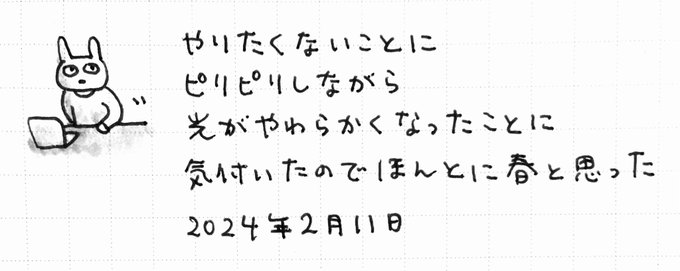 やりたくないことに
ピリピリしながら
光がやわらかくなったことに
気付いたのでほんとに春と思った
2024年2月11日